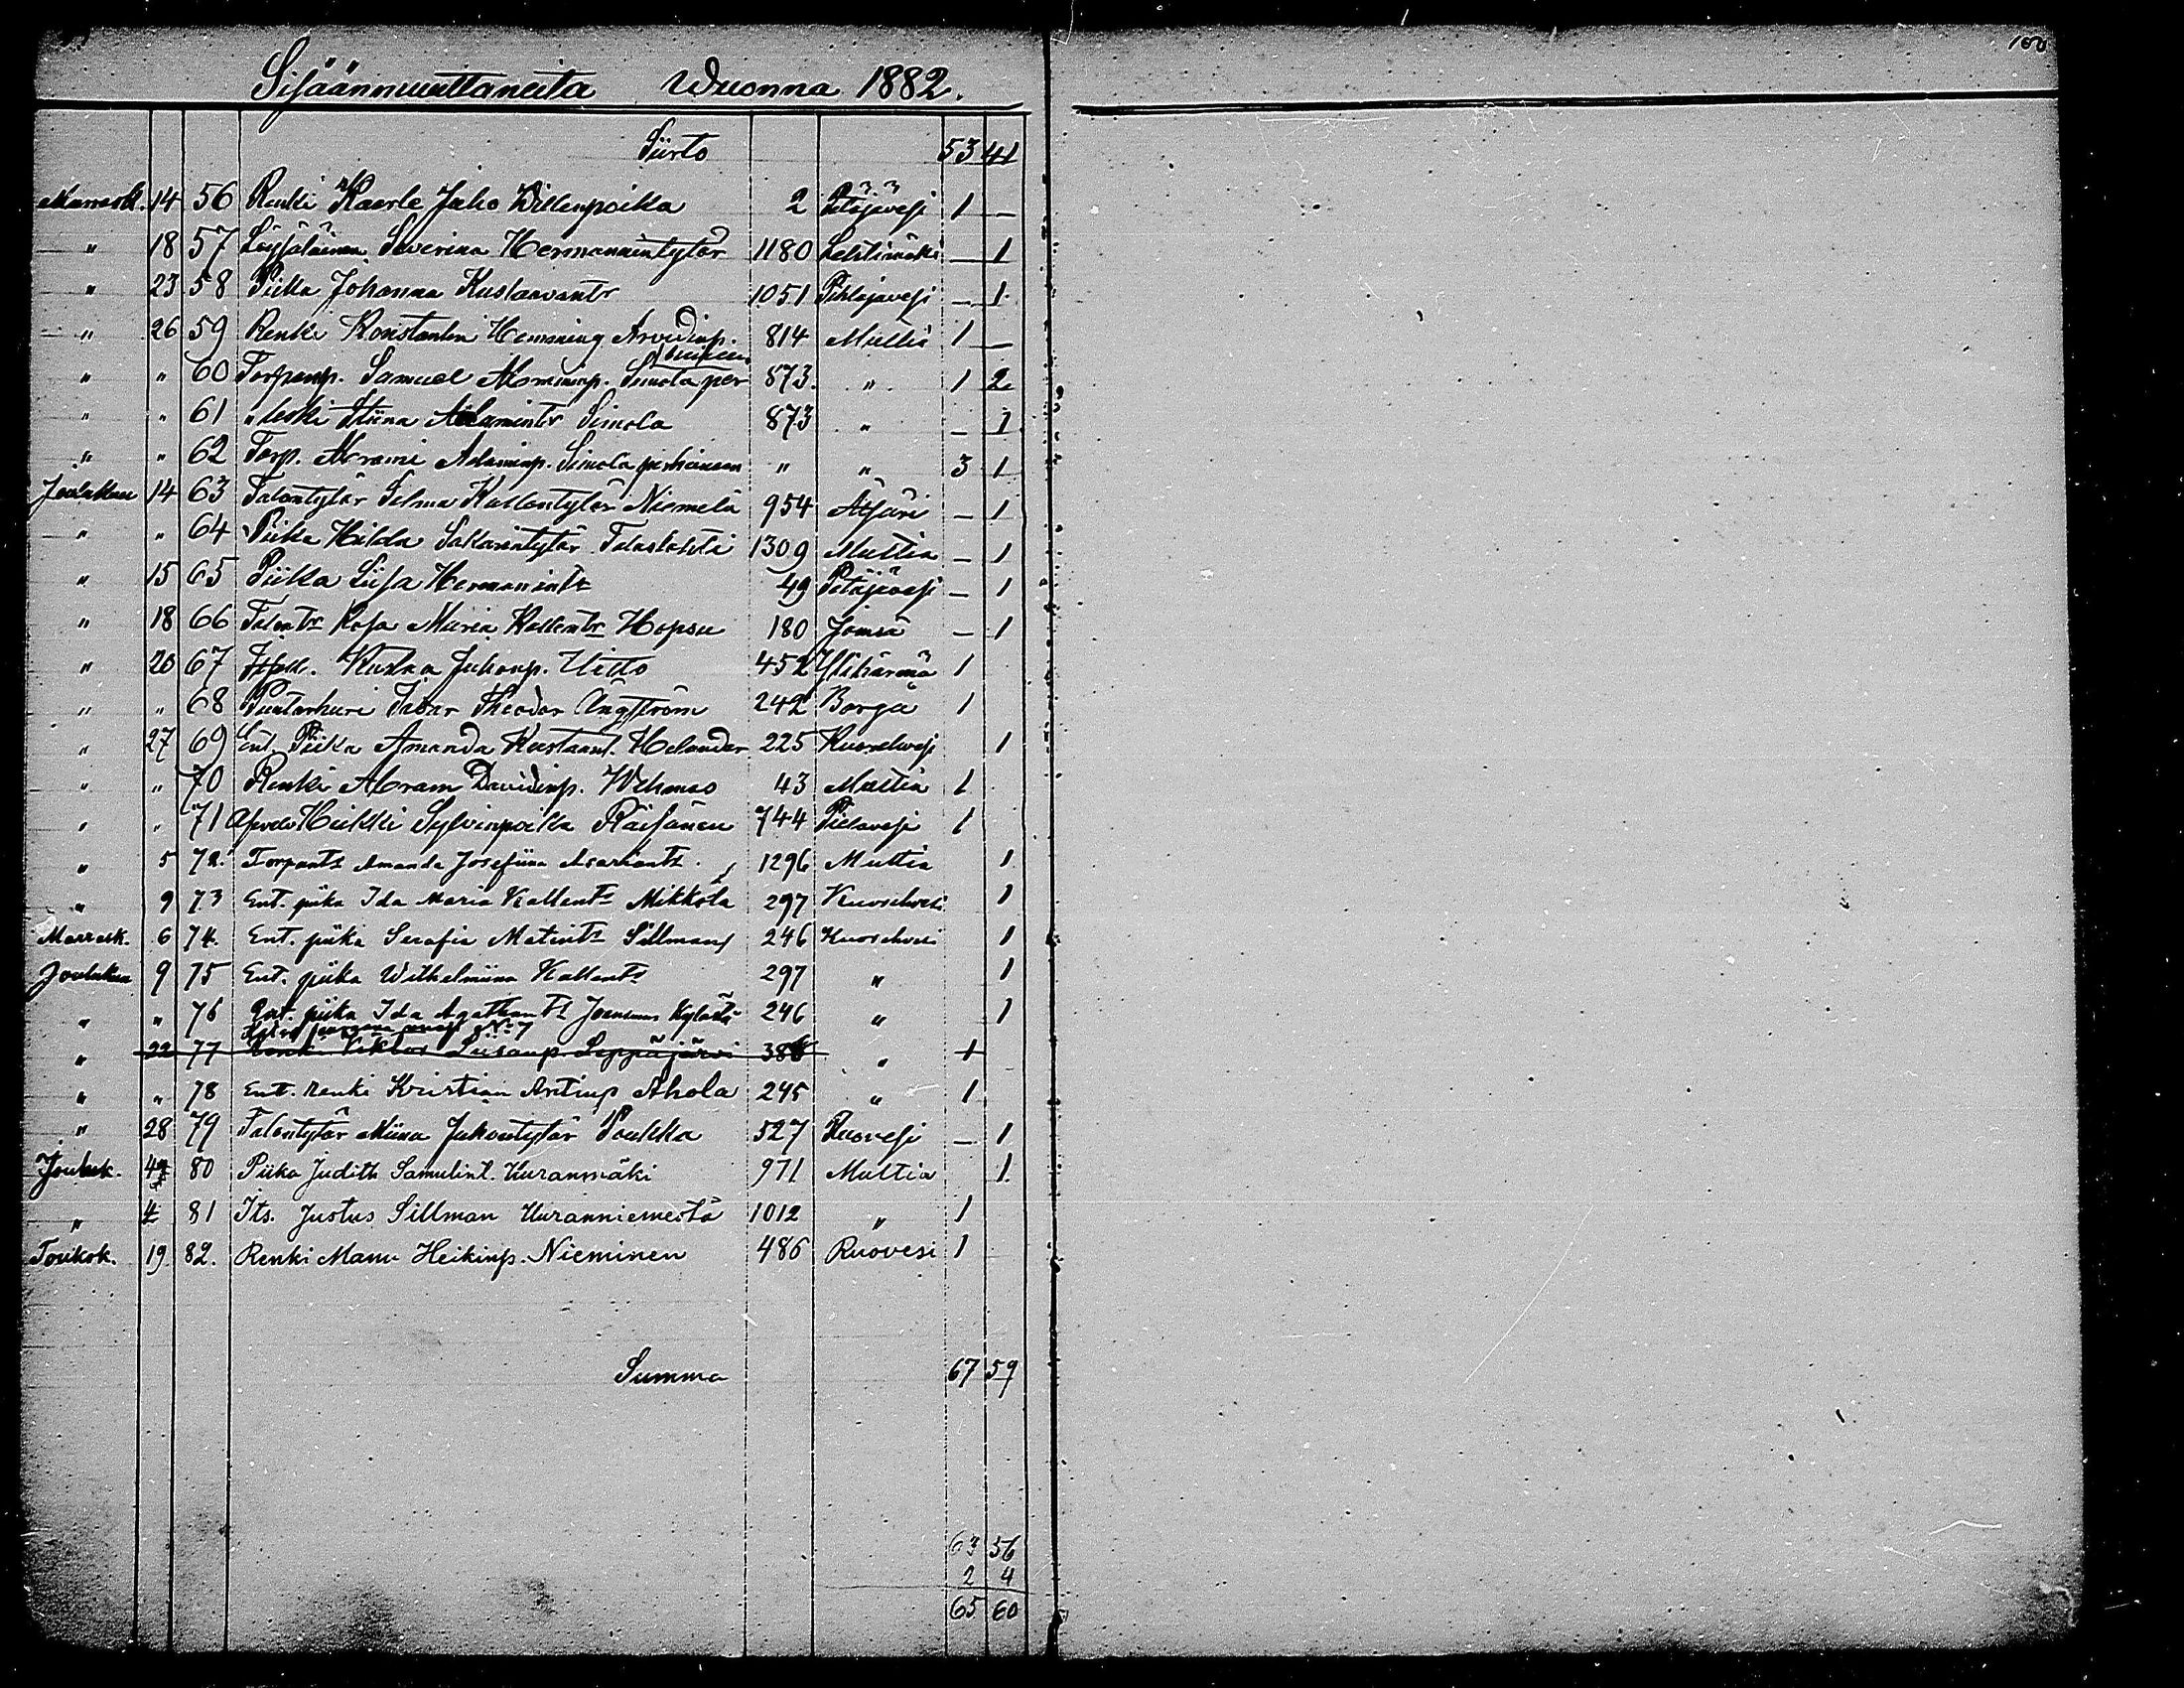 100
Sisäänmuuttaneita Wuonna 1882.
Siirto 53 41
Marrask. 14 56 Renki Kaarle Juho Willenpoika 2 Petäjävesi 1 —
" 18 57 Löysäläinen Severina Hermannintytär 1180 Lehtimäki — 1
" 23 58 Piika Johanna Kustaavantr 1051 Pihlajavesi — 1
" 26 59 Renki Konstantin Hemming Arvidinp. 814 Multia 1 —
" " 60 Torpanp. Samuel Abraminp. Simola per 873 " 1 2
" " 61 " leski Stiina Adamintr Simola 873 " — 1
" " 62 Torp. Abrami Adaminp. Simola perheineen " " 3 1
Joulukuu 14 63 Talontytär Selma Kallentytär Niemelä 954 Ätsäri — 1
" " 64 Piika Hilda Sakarintytär Talaslahti 1309 Multia — 1
" 15 65 Piika Liisa Hermanintr 49 Petäjävesi — 1
" 18 66 Talontr Rosa Maria Kallentr Hopsu 180 Jämsä — 1
" 20 67 Kustaa Juhonp. Uitto 452 Ylihärmä 1
" " 68 Puutarhuri Ivar Theodor Ångström 242 Borgå 1
" 27 69 Ent. Piika Amanda Kustaant. Helander 225 Kuorehvesi 1
" " 70 Renki Abram Davidinp. Wehmas 43 Multia 1
" " 71 Heikki Sylvinpoika Räisänen 744 Pielavesi 1
" 5 72. Torpantr Amanda Josefiina Asariantr. 1296 Multia 1
" 9 73 Ent. piika Ida Maria Kallentr Mikkola 297 Kuorehvesi 1
Marrask. 6 74. Ent. piika Serafia Matintr Sillman 246 Kuorehvesi 1
Joulukuu 9 75 Ent. piika Wilhelmiina Kallentr 297 " 1
" " 76 Ent. piika Ida Agathantr Joenuun kylästä 246 " 1
No 7
" 22 77 Renki Viktor Liisanp. Leppäjärvi 386 " 1
" " 78 Ent. renki Kristian Antinp Ahola 245 " 1
" 28 79 Talontytär Miina Juhontytär Poukka 527 Ruovesi — 1
Jouluk. 4 80 Piika Judith Samulint. Uuranmäki 971 Multia 1
" 4 81 Its. Justus Sillman Uuranniemestä 1012 " 1
Toukok. 19 82. Renki Manu Heikinp. Nieminen 486 Ruovesi 1
Summa 67 59
63 56
2 4
65 60